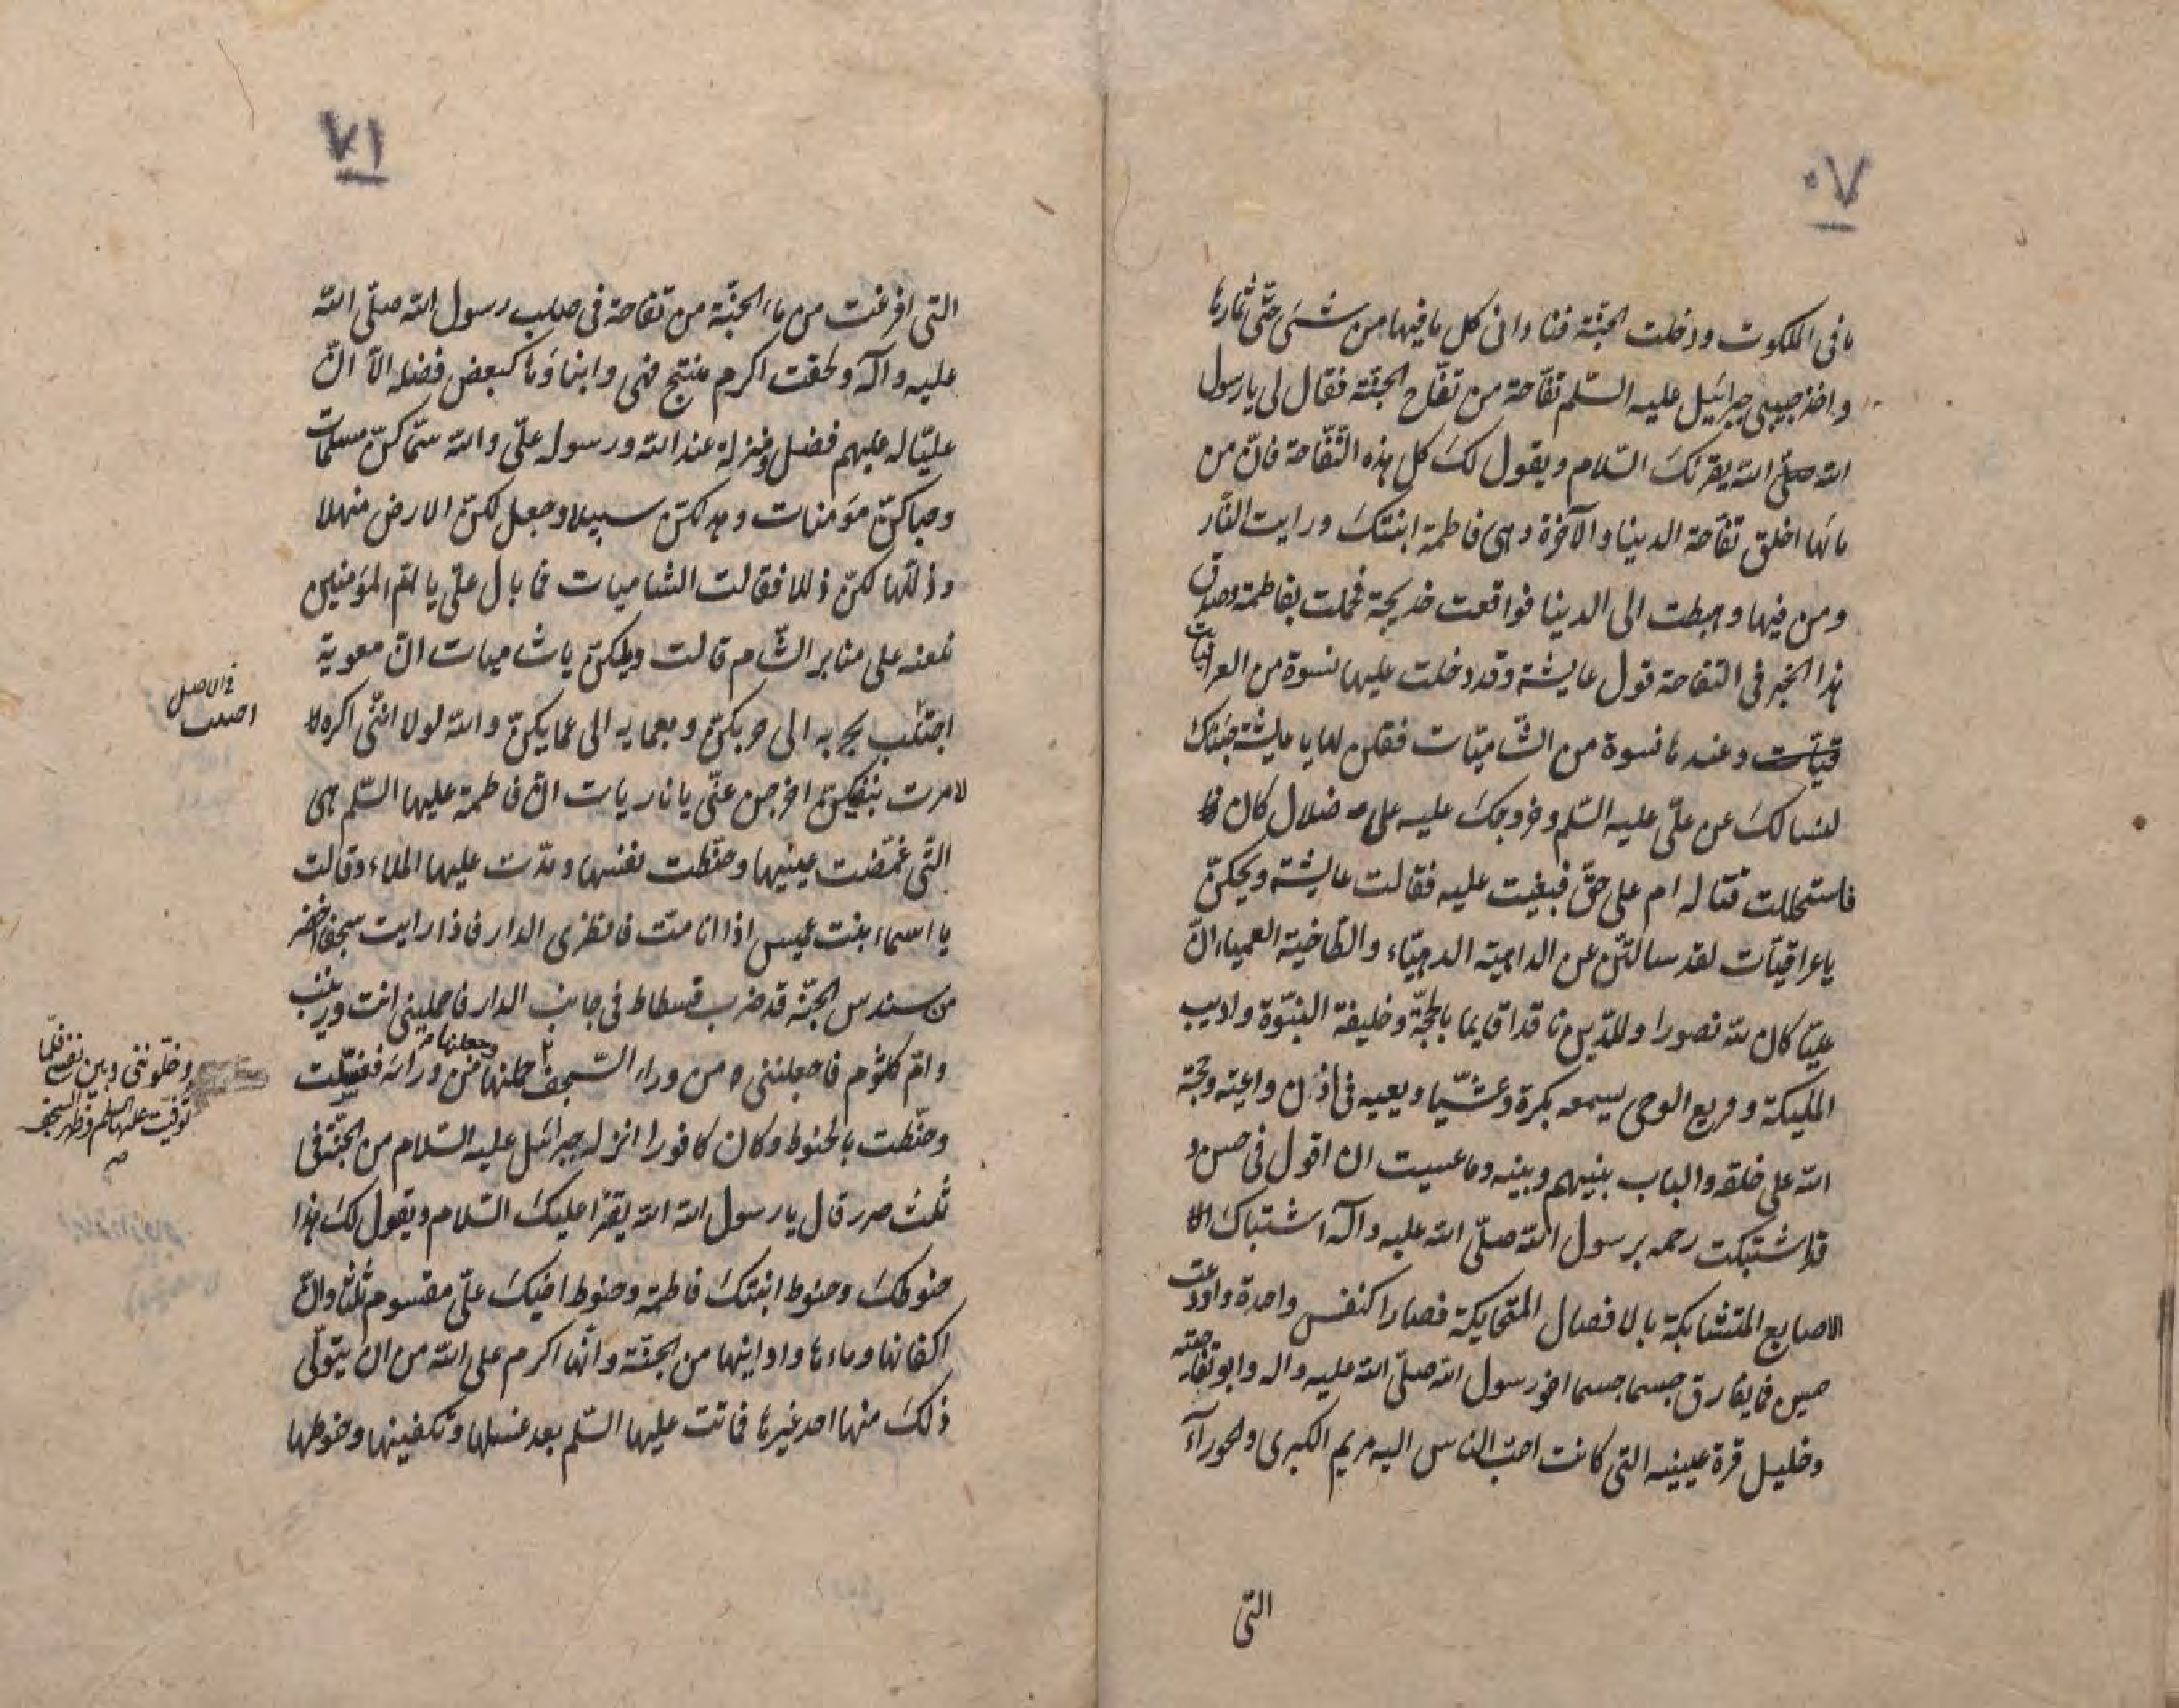 ٧٠
ما فى الملكوت ودخلت الجنّة فناداني كل ما فيها من شئ حتّى ثمارها
واخذ حبيبي جبرائيل عليه السّلم تفّاحة من تفّاح الجنّة فقال لى يا رسول
الله صلى الله يقرئك السّلام ويقول لك كل هذه التّفّاحة فانّ من
مائها اخلق تفّاحة الدينا والآخرة وهى فاطمة ابنتك ورايت النّار
ومن فيها وهبطت الى الدينا فواقعت خديجة فحملت بفاطمة وصدق
هذا الخبر فى التفاحة قول عايشة وقد دخلت عليها نسوة من العراقيات
قيّات وعندها نسوة من الشّاميّات فقلن لها يا عايشة جئناك
لنسالك عن علىّ عليه السّلم وخروجك عليه على ضلال كان
فاستحللت قتاله ام على حقّ فبغيت عليه فقالت عايشة ويحكنّ
يا عراقيّات لقد سالتنّ عن الداهية الدهيّاء والطّاخية العمياء انّ
عليّا كان لله نصورا وللدّين قايما بالحجّة وخليفة النبّوة واديب
المليكة وفريع الوحى يسمعه بكرة وعشيّا ويعيه فى اذن واعية وحجّة
الله على خلقه والباب بينهم وبينه وما عسيت ان اقول فى
قد اشتبكت رحمه برسول الله صلّى الله عليه وآله اشتباك
الاصابع المتشابكة بالافصال المتحابكة فصارا كنفس واحدة واودعت
حين فما يفارق جسما جسما اخو رسول الله صلّى الله عليه واله وابو تفّاحته
وخليل قرة عيينه التى كانت احبّ الناس اليه مريم الكبرى والحورآء
التّى
٧١
التى افرغت من ماء الجنّة من تفّاحة فى صلب رسول الله صلّى الله
عليه وآله ولحقت اكرم منتج فهى وابناؤها كبعض فضله الاّ انّ
عليّا له عليهم فضل ومنزلة عند الله ورسوله علىّ والله سمّاكنّ مسلمات
وحباكنّ مؤمنات ومهد لكنّ سبيلا وجعل لكنّ الارض منهلا
وذلّلها لكنّ ذللا فقالت الشاميات فما بال علىّ يا امّ المؤمنين
نلعنه على منابر الشّام قالت ويلكنّ يا شاميات انّ معوية
اجتلب بحربه الى حربكنّ وبعمايه الى عمايكنّ والله لولا انّنى اكره
لامرت بنفيكنّ اخرجن عنّى يا ناريات انّ فاطمة عليها السّلم هى
التّى غمّضت عينيها وحنّطت نفسها ومدّت عليها الملاء وقالت
يا اسماء بنت عميس اذا انا متّ فانظرى الدار فاذا رايت سجفا اخضر
من سندس الجنّة قد ضرب فسطاط فى جانب الدار فاحمليني انت وزينب
وامّ كلثوم فاجعلننى من وراء السّجف حملنها وجعلنها من ورائه فغسّلت
وحنّطت بالحنوط وكان كافورا انزله جبرائيل عليه السّلام من الجنّة فى
ثلث صرر قال يا رسول الله الله يقرأ عليك السّلام ويقول لك هذا
حنوطك وحنوط ابنتك فاطمة وحنوط اخيك علىّ مقسوم ثلثا وانّ
اكفانها وماءها واوانيها من الجنّة وانّها اكرم على الله من ان يتولّى
ذلك منها احد غيرها فماتت عليها السّلم بعد غسلها وتكفينها وحنوطها
فى الاصل
وخلّونى وبين نفسى فلمّا
توفيت عليها السلم وظهر السجف
صح